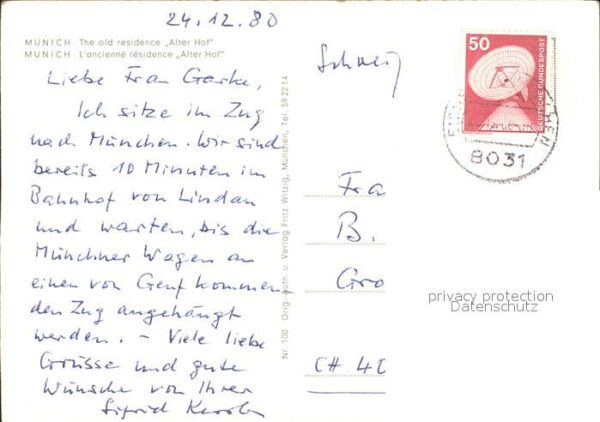 24.12.80
MUNICH The old residence „Alter Hof"
MUNICH L'ancienné résidence „Alter Hof"
Liebe Frau Gerke,
Ich sitze im Zug
nach München. Wir sind
bereits 10 Minuten im
Bahnhof von Lindau
und warten, bis die
Münchner Wagen an
einen von Genf kommen
den Zug angehängt
werden. – Viele liebe
Grüsse und gute
Wünsche von Ihrer
Sigrid
Nr. 100 Orig.-Aufn. u. Verlag Fritz Witzig, München, Tel. 59 22 14
Schweiz
Fra
B.
Gro
CH 4
50
DEUTSCHE BUNDESPOST
8031
privacy protection
Datenschutz